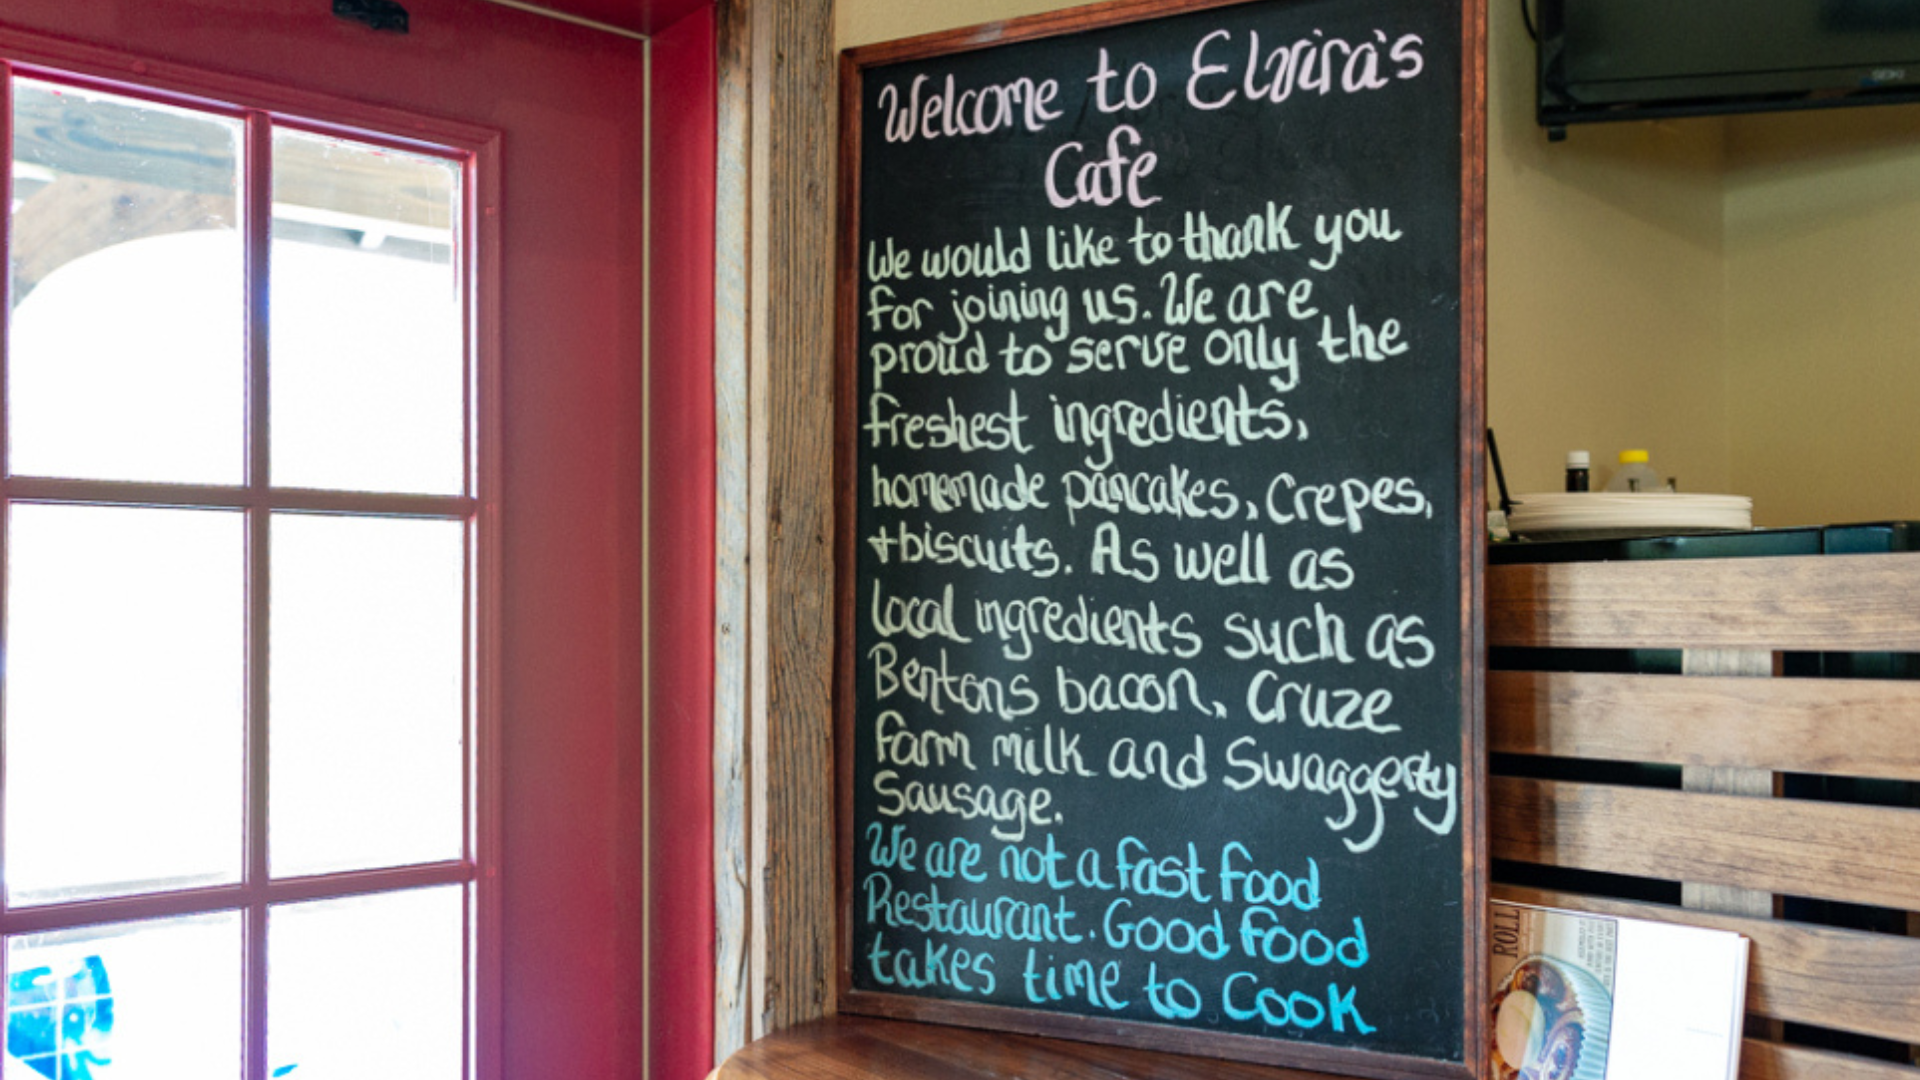 Welcome to Elvira's
Cafe
We would like to thank you
for joining us. We are
proud to serve only the
freshest ingredients,
homemade pancakes, Crepes,
+biscuits. As well as
local ingredients such as
Bentons bacon, Cruze
farm milk and Swaggerty
Sausage.
We are not a fast food
Restaurant. Good food
takes time to Cook
ROLL